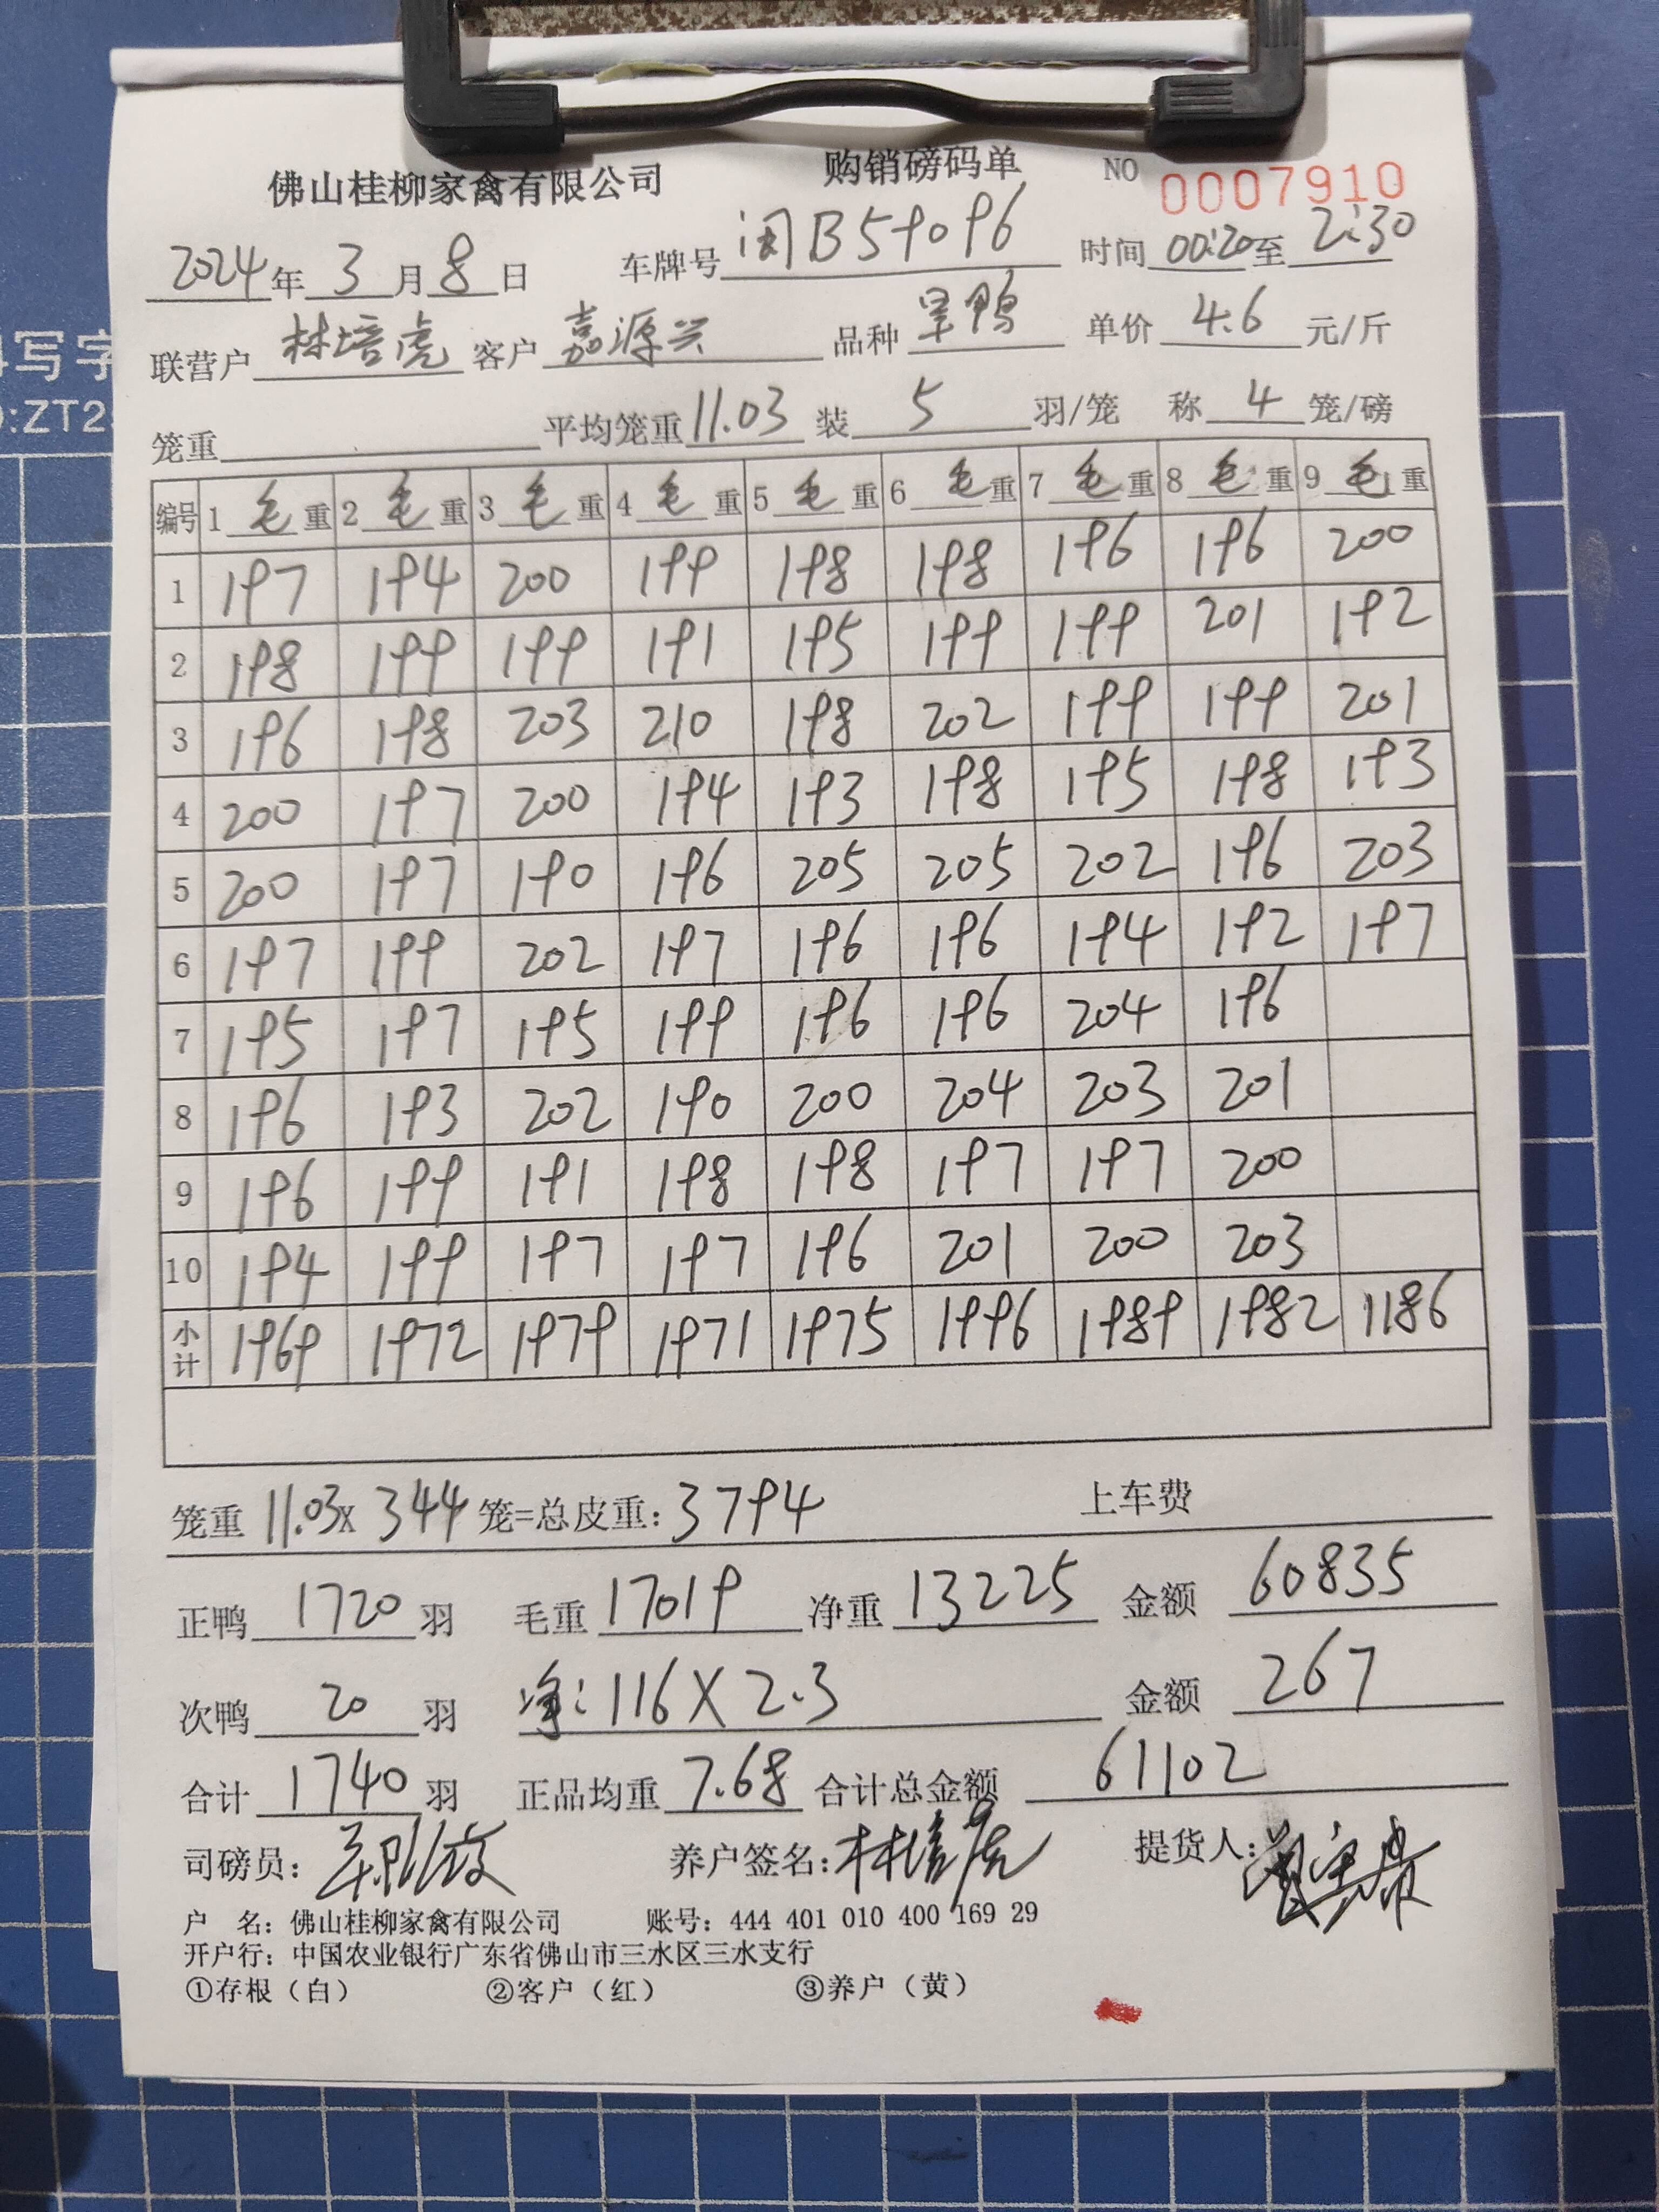 佛山桂柳家禽有限公司 购销磅码单 NO 0007910
2024年 3 月 8 日 车牌号 闽B59096 时间 00:20至 2:30
联营户 林培虎 客户 嘉源兴 品种 旱鸭 单价 4.6 元/斤
笼重 平均笼重 11.03 装 5 羽/笼 称 4 笼/磅
编号 1 毛 重 2 毛 重 3 毛 重 4 毛 重 5 毛 重 6 毛 重 7 毛 重 8 毛 重 9 毛 重
1 197 194 200 199 198 198 196 196 200
2 198 199 199 191 195 199 199 201 192
3 196 198 203 210 198 202 199 199 201
4 200 197 200 194 193 198 195 198 193
5 200 197 190 196 205 205 202 196 203
6 197 199 202 197 196 196 194 192 197
7 195 197 195 199 196 196 204 196
8 196 193 202 190 200 204 203 201
9 196 199 191 198 198 197 197 200
10 194 199 197 197 196 201 200 203
小计 1969 1972 1979 1971 1975 1996 1989 1982 1186
笼重 11.03X 344 笼=总皮重: 3794 上车费
正鸭 1720 羽 毛重 17019 净重 13225 金额 60835
次鸭 20 羽 净: 116 X 2.3 金额 267
合计 1740 羽 正品均重 7.68 合计总金额 61102
司磅员: 养户签名: 林培虎 提货人:
户 名: 佛山桂柳家禽有限公司 账号: 444 401 010 400 169 29
开户行: 中国农业银行广东省佛山市三水区三水支行
①存根（白） ②客户（红） ③养户（黄）